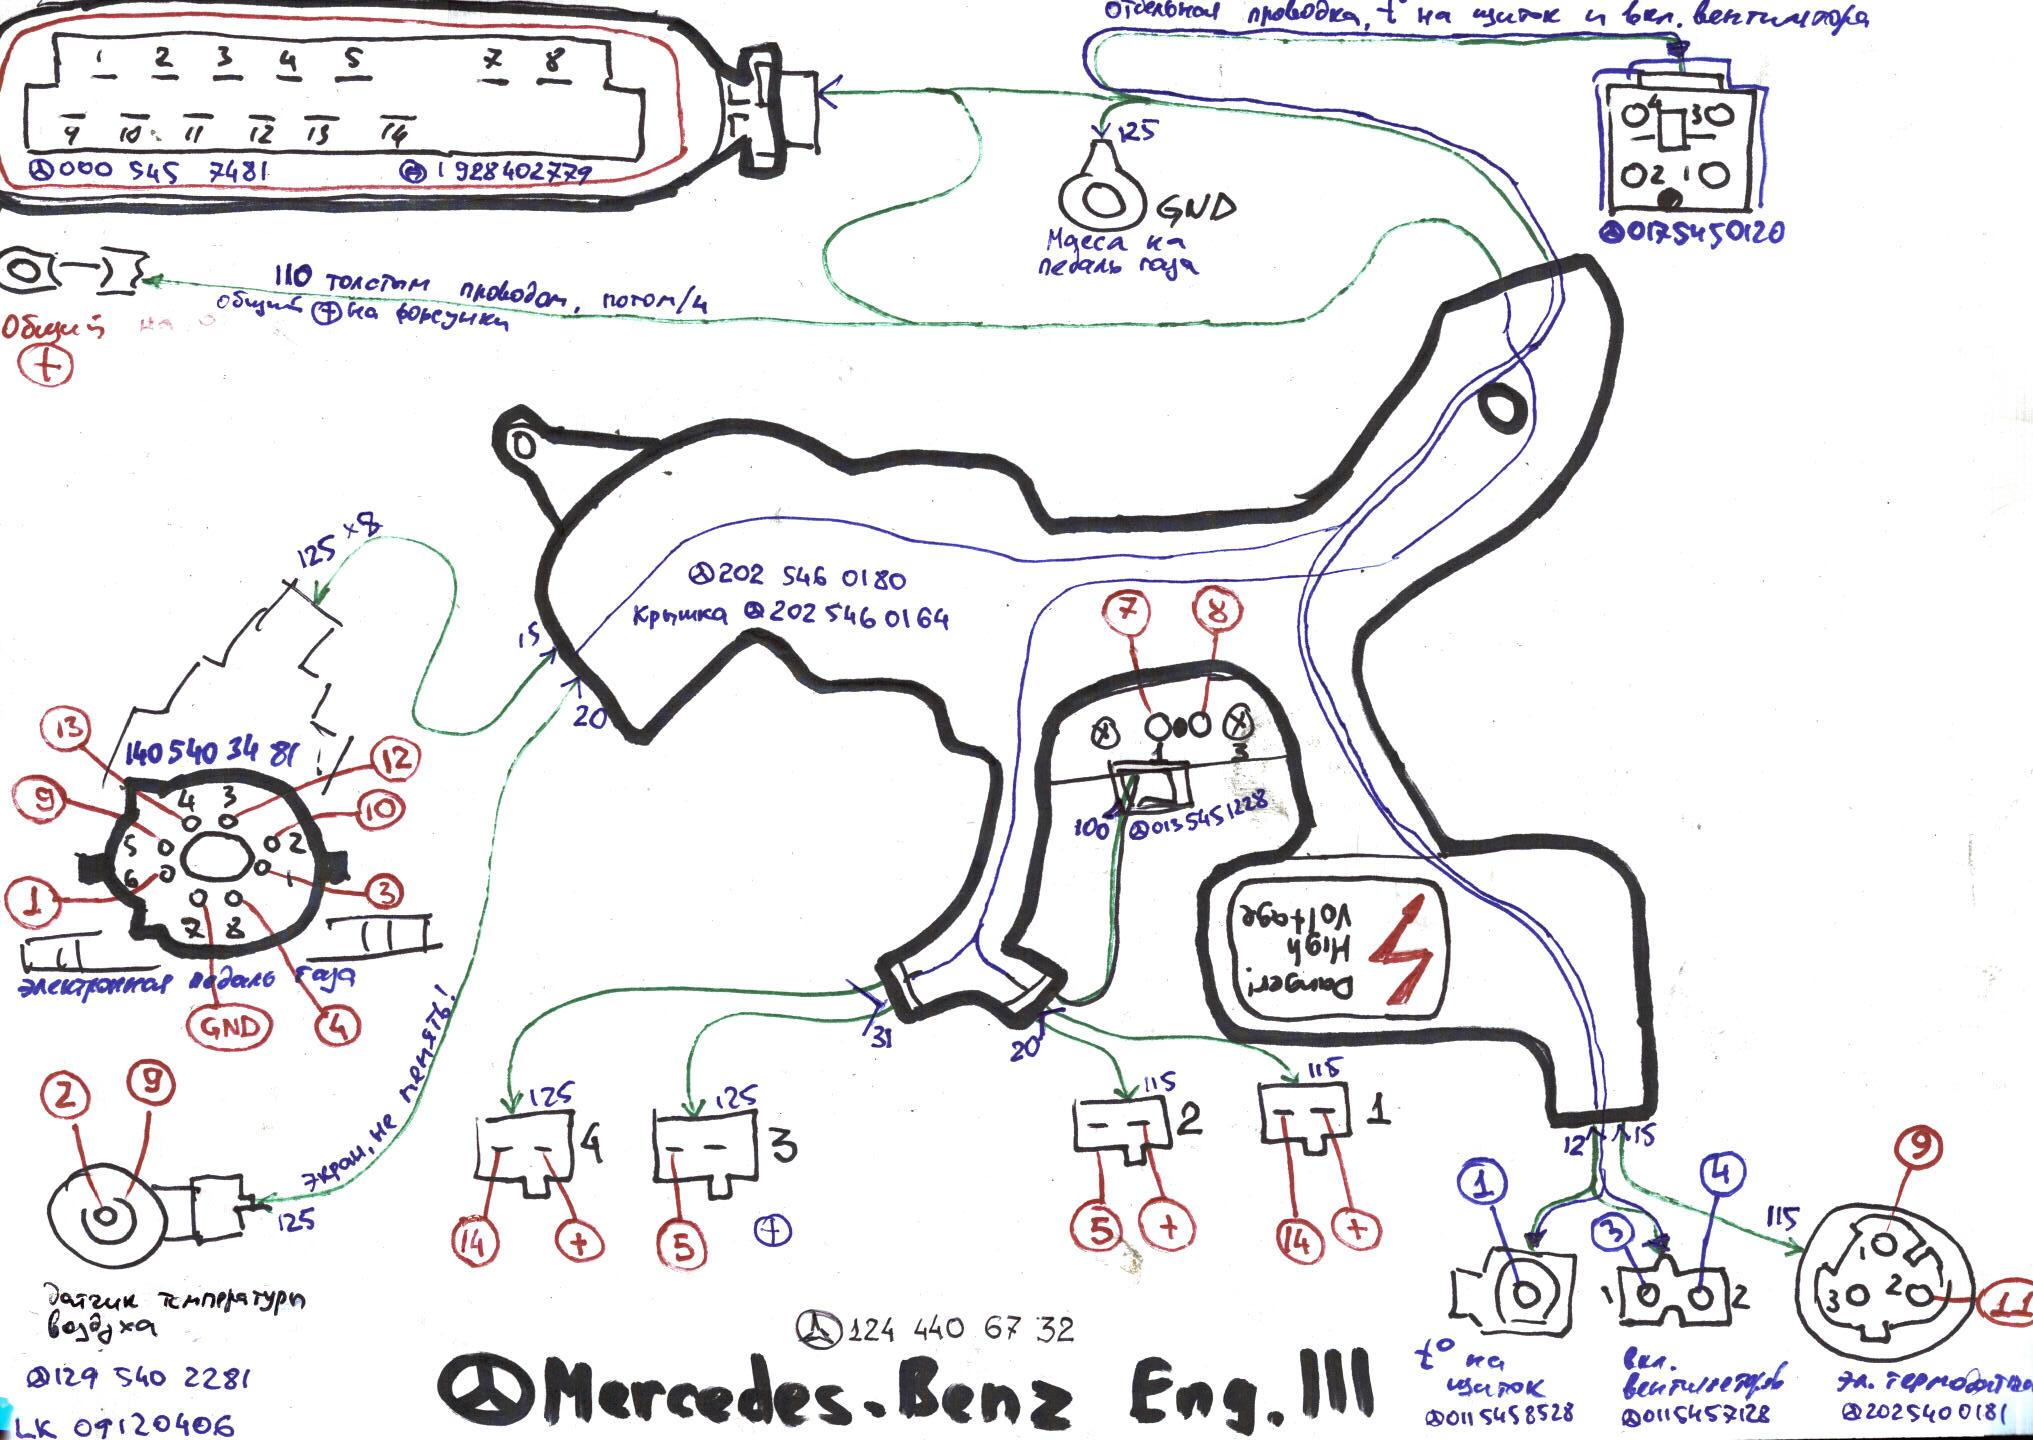 Отдельная проводка, t° на щиток и вкл. вентилятора
1 2 3 4 5 7 8
9 10 11 12 13 14
000 545 7481 1928402779
125
GND
Масса на
педаль газа
4 3
2 1
0175450120
110 толстым проводом, потом/4
общий + на форсунки
Общий
+
125 x8
15
20
202 546 0180
Крышка 202 546 0164
7 8
1 3
100
013 545 1228
140 540 34 81
13
12
9
10
1
3
4 3
5 2
6 1
7 8
Электронная педаль газа
GND
4
Danger!
High
Voltage
экран, не менять!
31
20
2 9
125
125 4
14 +
125 3
5 +
115 2
5 +
115 1
14 +
12 15
1
3
4
1 2
115
9
1
3 2
11
Датчик температуры
воздуха
129 540 2281
LK 09120406
124 440 67 32
Mercedes-Benz Eng. III
t° на
щиток
0115458528
вкл.
вентиляторов
0115457128
2025400181